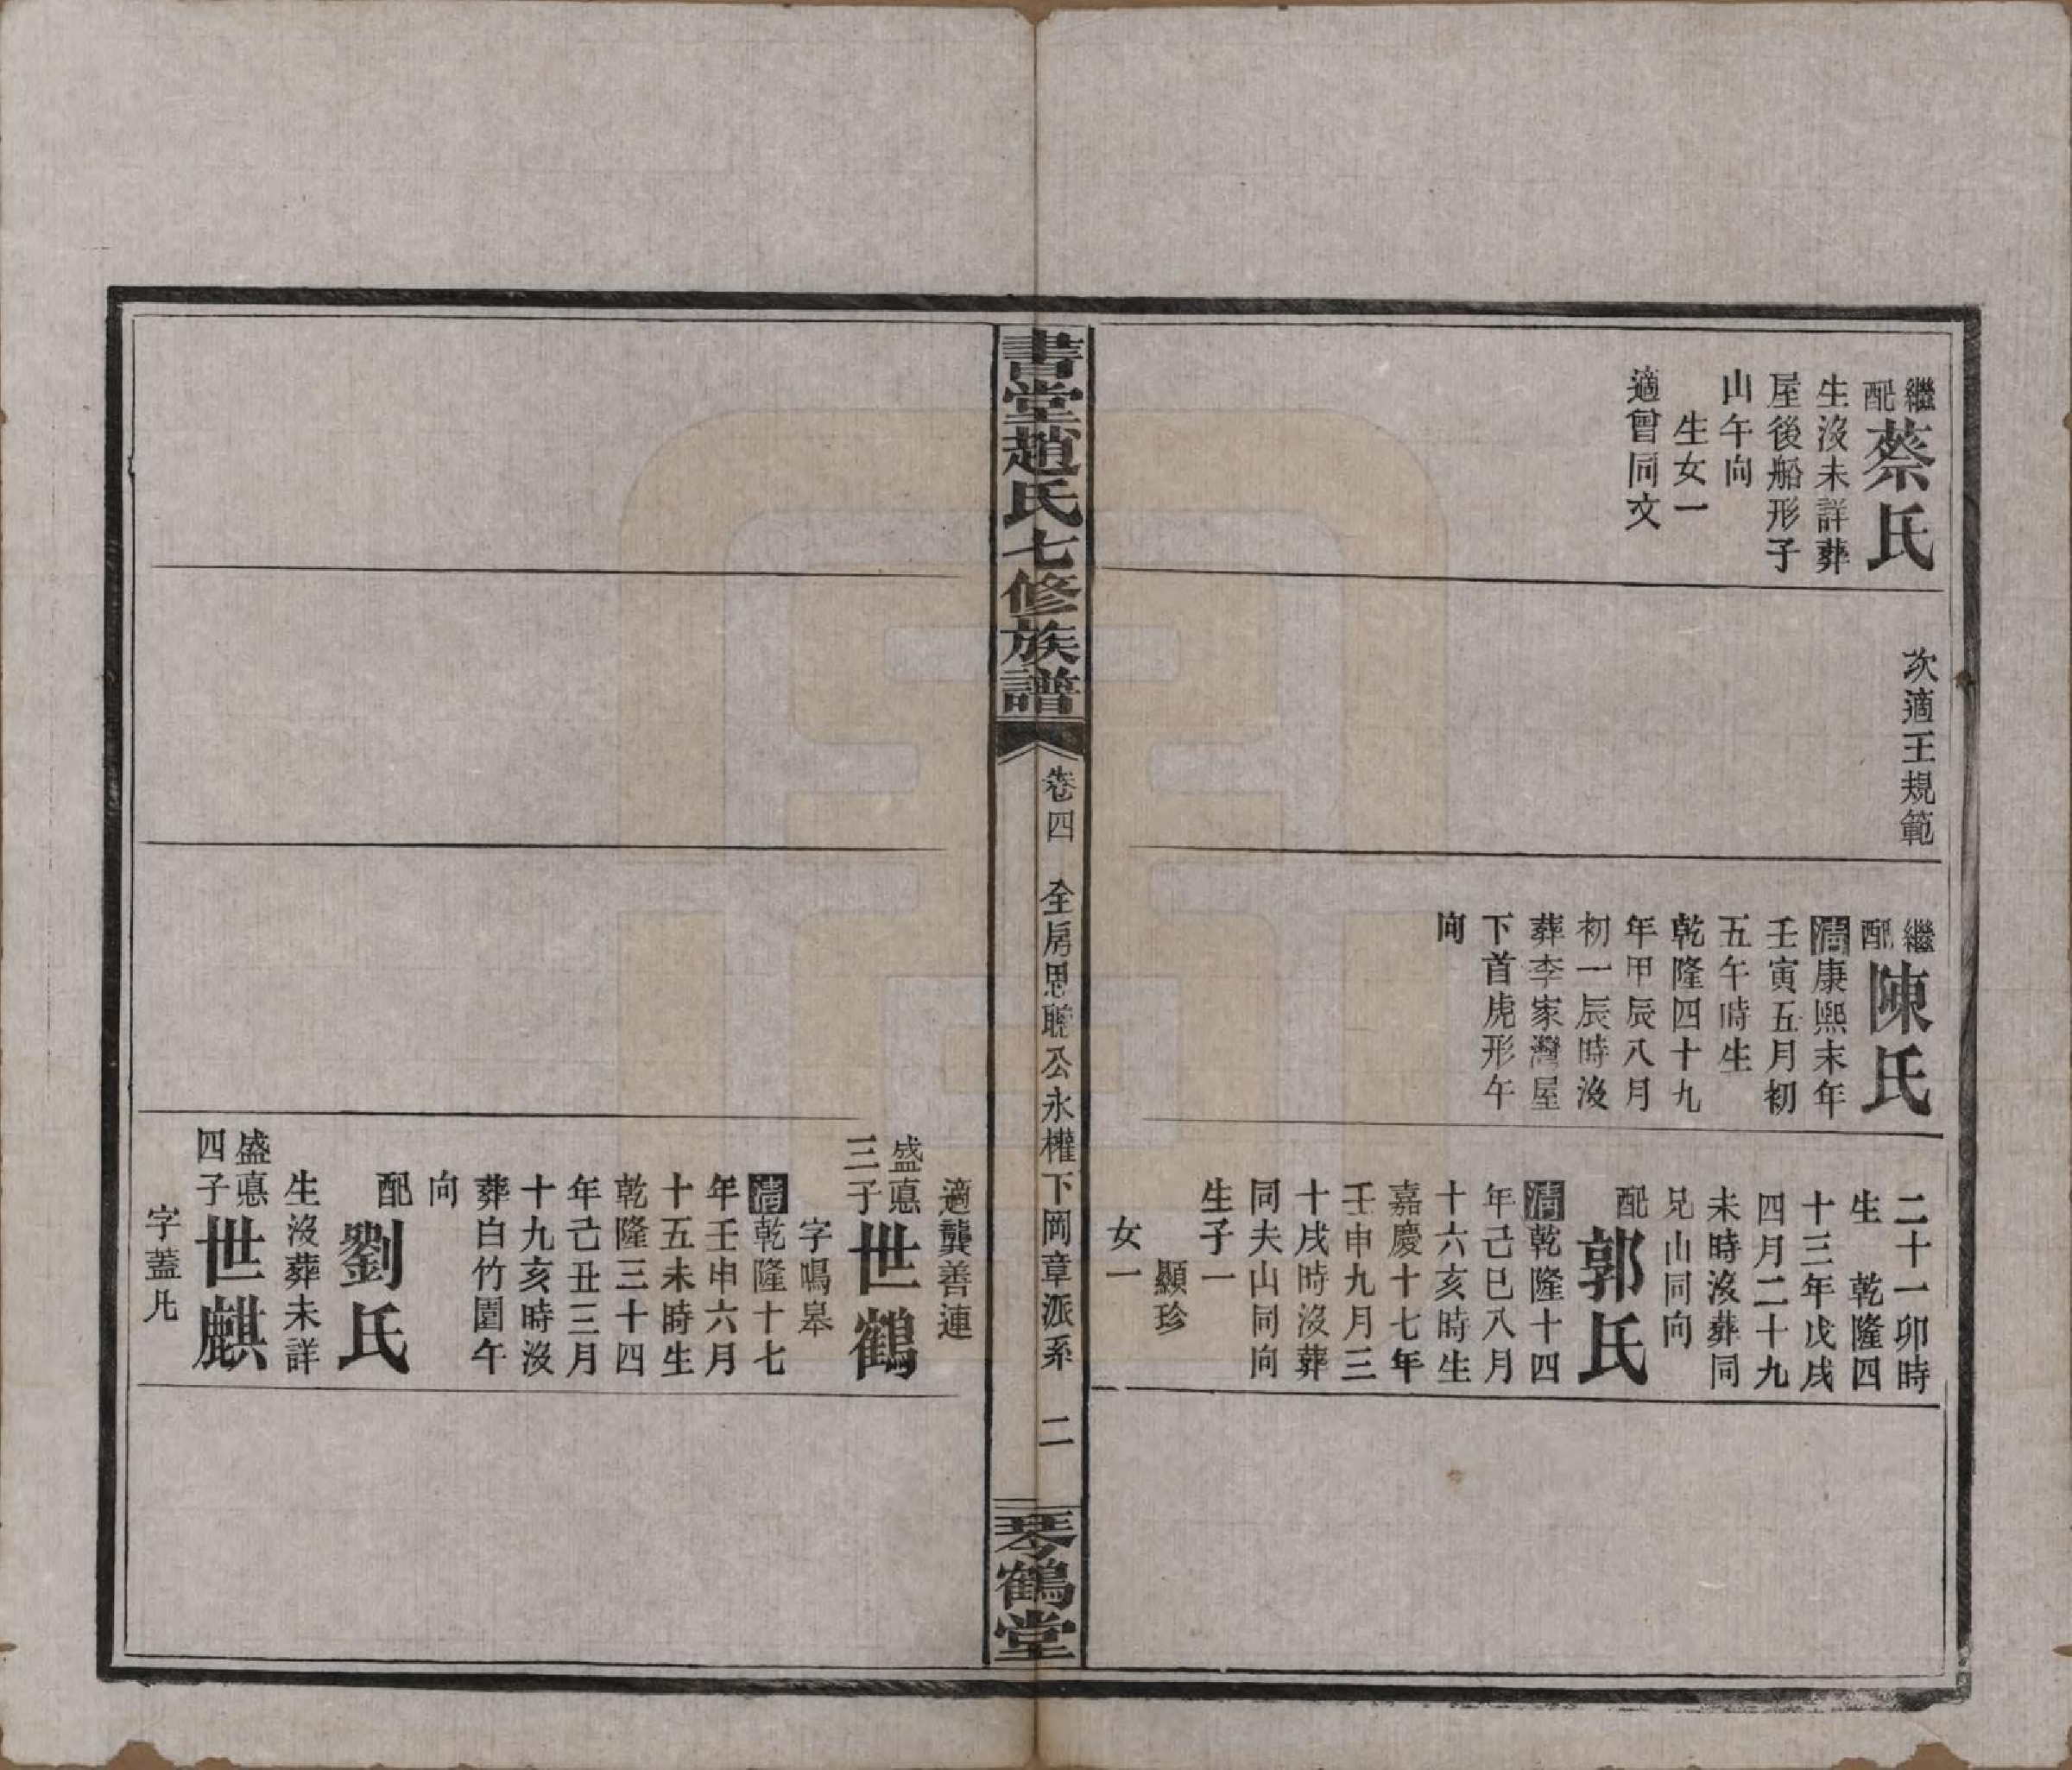 繼配蔡氏
生沒未詳葬
屋後船形子
山午向
生女一
適曾同文
次適王規範
繼配陳氏
清康熙末年
壬寅五月初
五午時生
乾隆四十九
年甲辰八月
初一辰時沒
葬李家灣屋
下首虎形午
向
二十一卯時
生 乾隆四
十三年戊戌
四月二十九
未時沒葬同
兄山同向
配郭氏
清乾隆十四
年己巳八月
十六亥時生
嘉慶十七年
壬申九月三
十戌時沒葬
同夫山同向
生子一
顯珍
女一
書堂趙氏七修族譜
卷四 全房思聰公永權下岡章派系 二
琴鶴堂
適龔善連
盛悳三子世鶴
字鳴皋
清乾隆十七
年壬申六月
十五未時生
乾隆三十四
年己丑三月
十九亥時沒
葬白竹園午
向
配劉氏
生沒葬未詳
盛悳四子世麒
字蓋凡